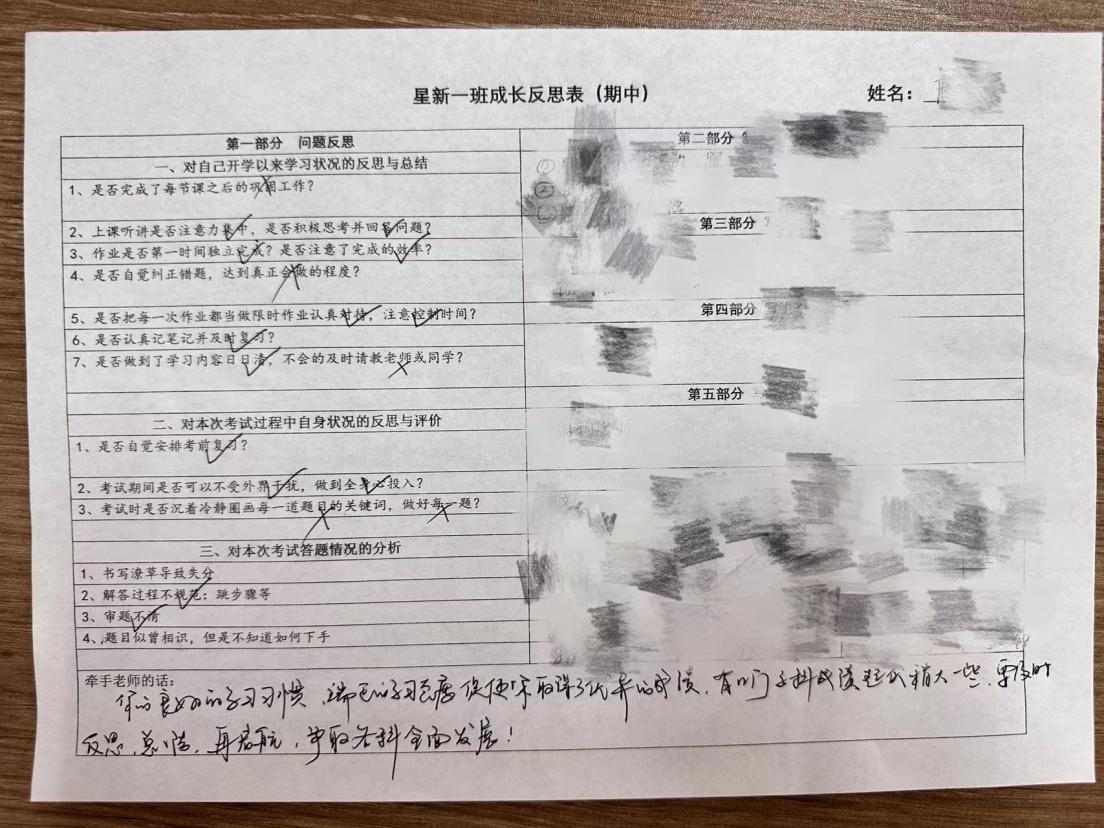 星新一班成长反思表（期中）
姓名：
第一部分 问题反思
第二部分
一、对自己开学以来学习状况的反思与总结
1、是否完成了每节课之后的巩固工作？
2、上课听讲是否注意力集中，是否积极思考并回答问题？
第三部分
3、作业是否第一时间独立完成？是否注意了完成的效率？
4、是否自觉纠正错题，达到真正会做的程度？
第四部分
5、是否把每一次作业都当做限时作业认真对待，注意控制时间？
6、是否认真记笔记并及时复习？
7、是否做到了学习内容日日清，不会的及时请教老师或同学？
第五部分
二、对本次考试过程中自身状况的反思与评价
1、是否自觉安排考前复习？
2、考试期间是否可以不受外界干扰，做到全身心投入？
3、考试时是否沉着冷静圈画每一道题目的关键词，做好每一题？
三、对本次考试答题情况的分析
1、书写潦草导致失分
2、解答过程不规范：跳步骤等
3、审题不清
4、题目似曾相识，但是不知道如何下手
牵手老师的话：
你的良好的学习习惯，端正的学习态度促使你取得了优异的成绩，有几门学科成绩起伏稍大一些，要及时
反思、总结，再启航，争取各科全面发展！